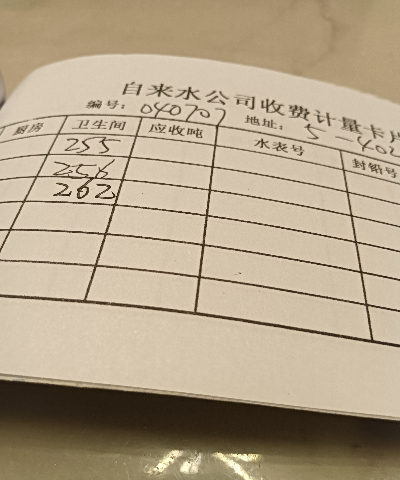 自来水公司收费计量卡片
编号：040707 地址：5-402
厨房 卫生间 应收吨 水表号 封铅号
255
256
262